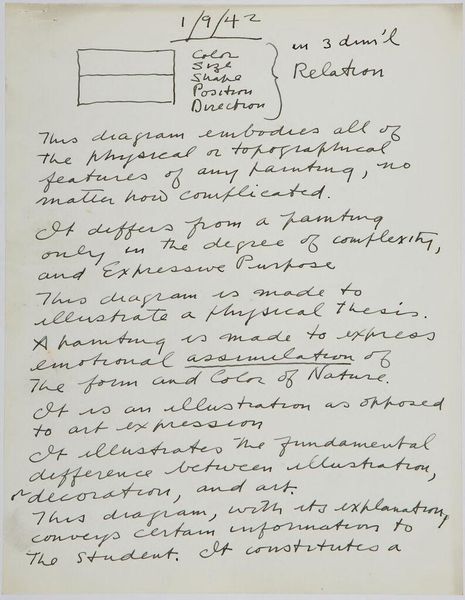 1/9/42
Color
Size
Shape
Position
Direction
in 3 dim'l
Relation
This diagram embodies all of
the physical or topographical
features of any painting, no
matter how complicated.
It differs from a painting
only in the degree of complexity,
and Expressive Purpose
This diagram is made to
illustrate a physical thesis.
A painting is made to express
emotional assimilation of
the form and Color of Nature.
It is an illustration as opposed
to art expression
It illustrates the fundamental
difference between illustration,
or decoration, and art.
This diagram, with its explanation,
conveys certain information to
the student. It constitutes a